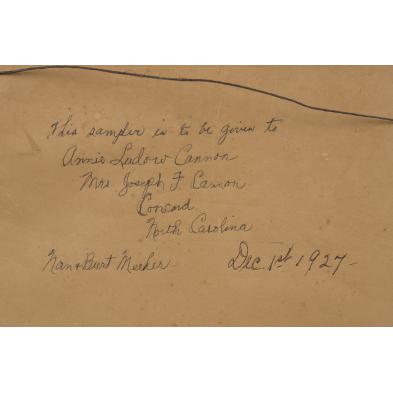 This sampler is to be given to
Annie Ludlow Cannon
Mrs. Joseph F. Cannon
Concord
North Carolina
Nan + Burt Meeker Dec. 1st 1927-